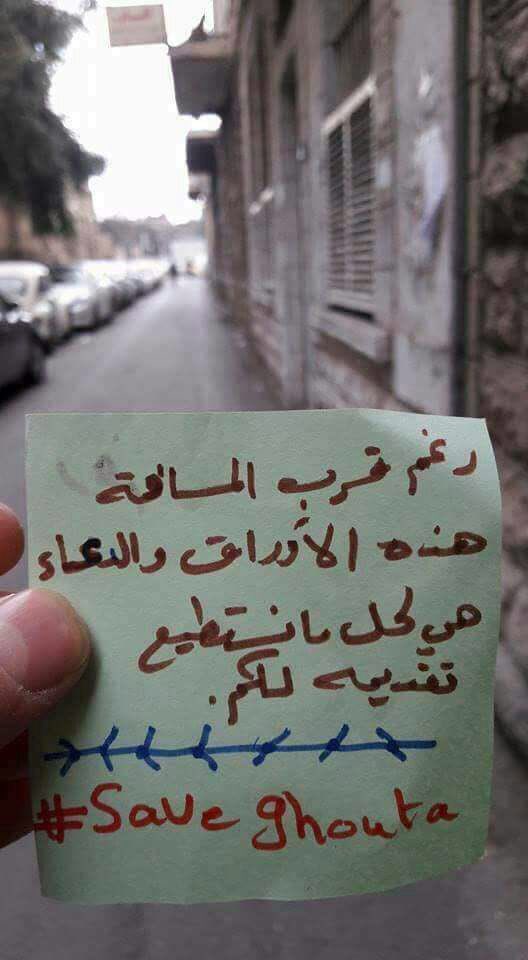 رغم قرب المسافة
هذه الأوراق والدعاء
هي كل ما نستطيع
تقديمه لكم.
#Save ghouta